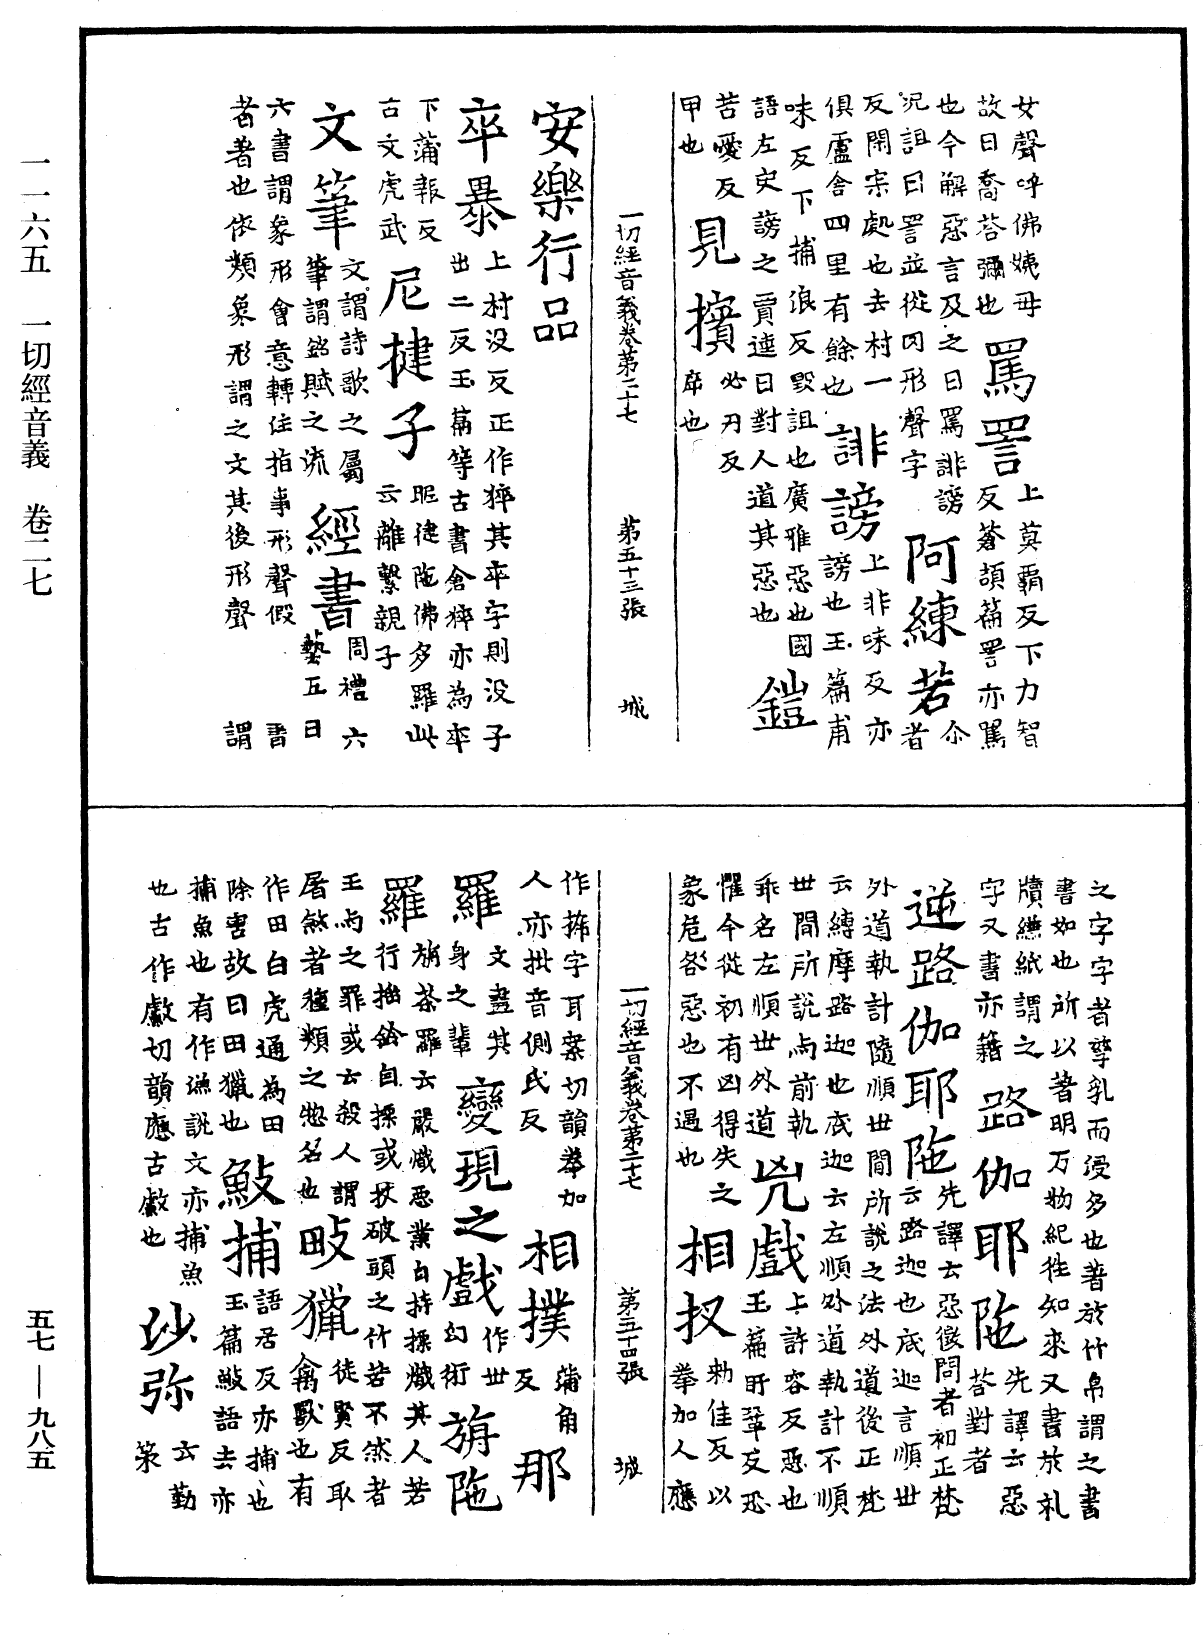 女聲呼佛姨毋
故曰喬荅彌也
罵詈
上莫霸反下力智
反蒼頡篇詈亦罵
也今解惡言及之曰罵誹謗
況詛曰詈並從罔形聲字
阿練若
尒
者
反閑宗處也去村一
俱盧舍四里有餘也
誹謗
上非味反亦
謗也玉篇甫
味反下捕浪反毀詛也廣雅惡也國
語左史謗之賈逵曰對人道其惡也
鎧
苦愛反
甲也
見擯
必刃反
弃也
一切經音義卷第二十七 第五十三張 城
安樂行品
卒暴
上村没反正作猝其卒字則没子
出二反玉篇等古書倉猝亦為卒
下蒲報反
古文虎武
尼揵子
昵揵陁佛多羅此
云離繫親子
文筆
文謂詩歌之屬
筆謂銘賦之流
經書
周禮六
藝五曰
六書謂象形會意轉注指事形聲假
者著也依類象形謂之文其後形聲
書
謂
之字字者孳乳而浸多也著於竹帛謂之書
書如也所以著明万物紀往知來又書於札
牘縑紙謂之
字又書亦籍
路伽耶陁
先譯云惡
荅對者
逆路伽耶陁
先譯云惡徵問者初正梵
云路迦也底迦言順世
外道執計隨順世間所說之法外道後正梵
云縛摩路迦也底迦云左順外道執計不順
世間所說与前執
乖名左順世外道
兇戲
上許容反惡也
玉篇盱鞏反恐
懼今從初有凶得失之
象危咎惡也不遇也
相扠
勑佳反以
拳加人應
一切經音義卷第二十七 第五十四張 城
作㧻字耳案切韻拳加
人亦扠音側氏反
相撲
蒲角
反
那
羅
文畫其
身之輩
變現之戲
作世
幻術
旃陁
羅
旃荼羅云嚴熾惡業自持摽熾其人若
行搖鈴自摽或扙破頭之竹若不然者
王与之罪或云殺人謂
屠煞者種類之惣名也
畋獵
徒賢反取
禽獸也有
作田白虎通為田
除害故曰田獵也
䱷捕
語居反亦捕也
玉篇䱷語去亦
捕魚也有作漁說文亦捕魚
也古作𩼪切韻應古𩼪也
沙弥
云勤
策
一一六五 一切經音義 卷二七
五七—九八五